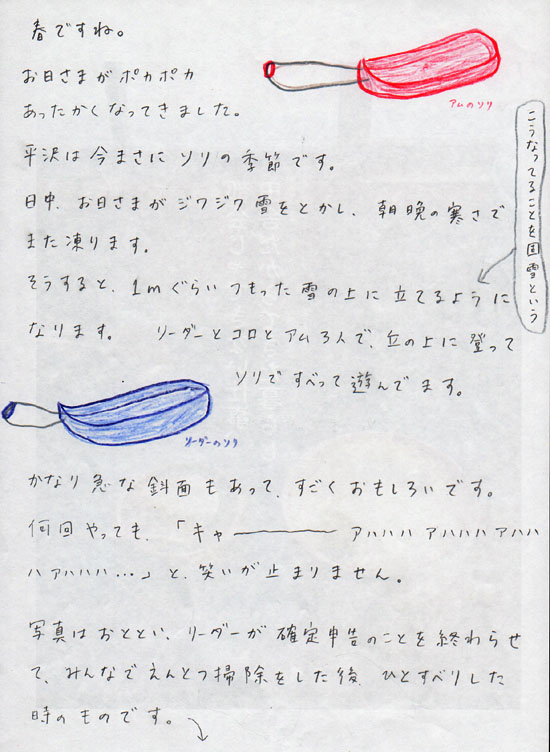 春ですね。
お日さまがポカポカ
あったかくなってきました。
アムのソリ
平沢は今まさにソリの季節です。
日中、お日さまがジワジワ雪をとかし、朝晩の寒さで
また凍ります。
そうすると、1mぐらいつもった雪の上に立てるように
こうなってることを固雪という
なります。 リーダーとコロとアム3人で、丘の上に登って
ソリですべって遊んでます。
リーダーのソリ
かなり急な斜面もあって、すごくおもしろいです。
何回やっても、「キャーーーー アハハハ アハハハ アハハ
ハ アハハハ…」と、笑いが止まりません。
写真はおととい、リーダーが確定申告のことを終わらせ
て、みんなでえんとつ掃除をした後、ひとすべりした
時のものです。